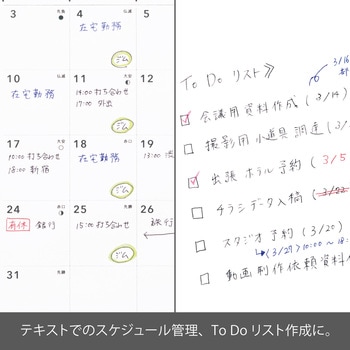 3 先負
4 仏滅
5
在宅勤務
ジム
10 仏滅
11 大安
12
在宅勤務
14:00 打ち合わせ
17:00 外出
ジム
17 大安
18 赤口
19
10:00 打ち合わせ
18:00 新宿
在宅勤務
13:00
ジム
24 赤口
25 先勝
26
有休 銀行
15:00 打ち合わせ
銀行
ジム
31 先勝
To Do リスト》
3/16
会議用資料作成 (3/14)
撮影用小道具調達 (3/
出張ホテル予約 (3/5
チラシデータ入稿 (3/22
スタジオ予約 (3/20)
↳(3/27) 10:00 〜 18:
動画制作依頼資料作
テキストでのスケジュール管理、To Do リスト作成に。